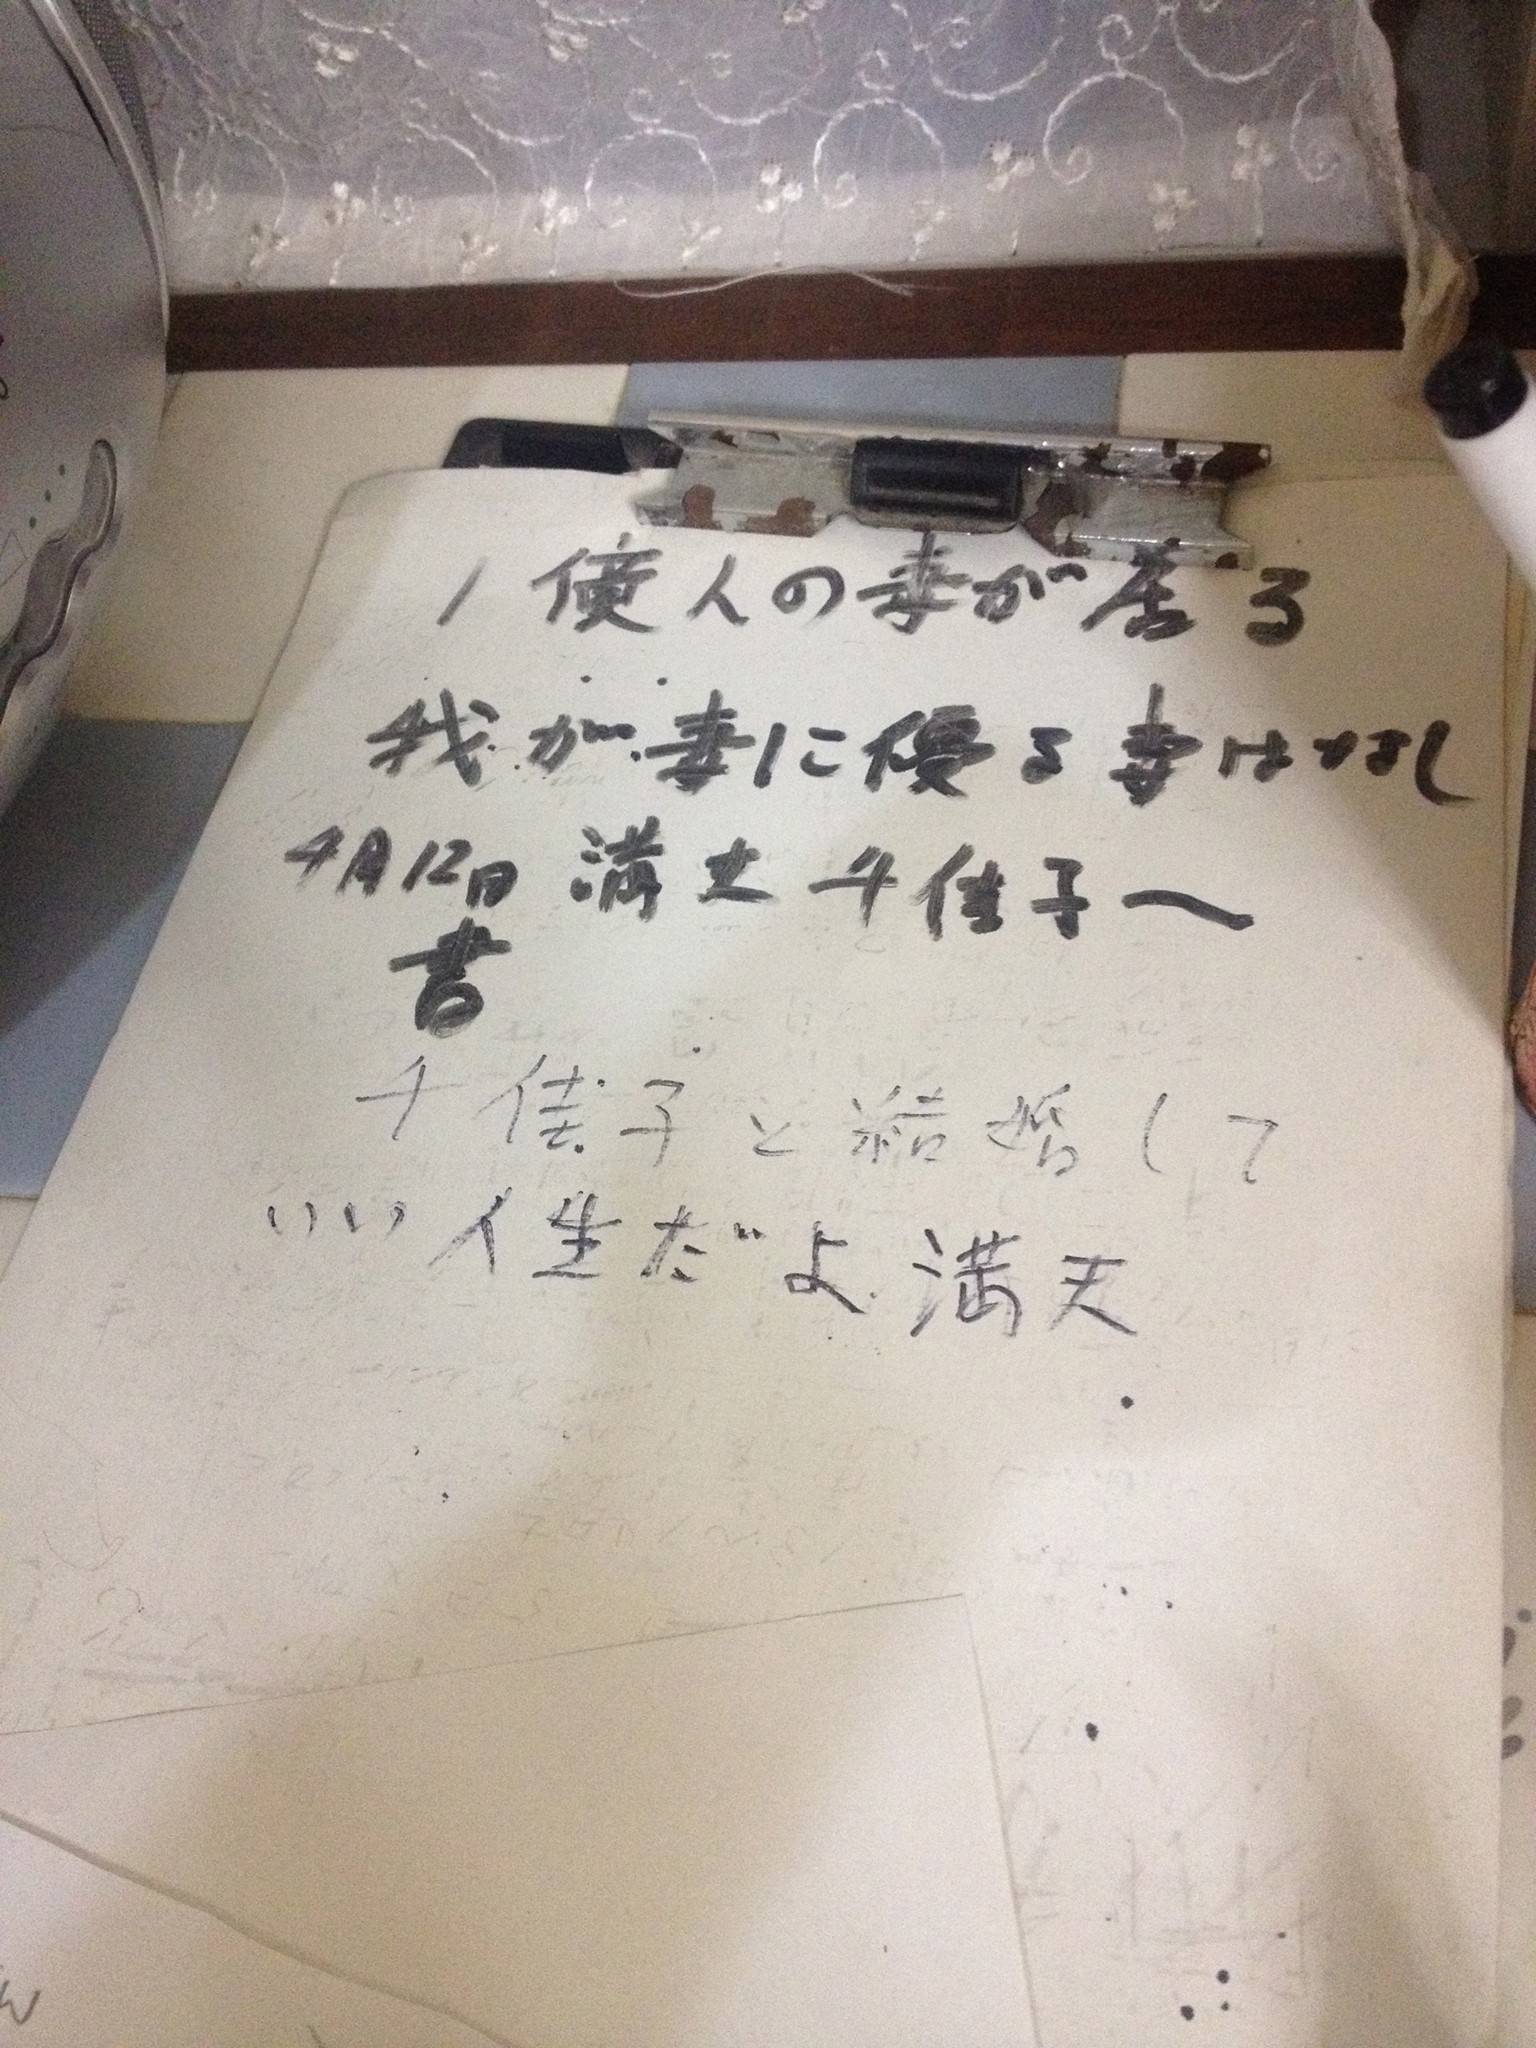 1億人の妻が居る
我が妻に優る妻はなし
4月12日 満丈 千佳子へ
書
千佳子と結婚して
いい人生だよ 満天